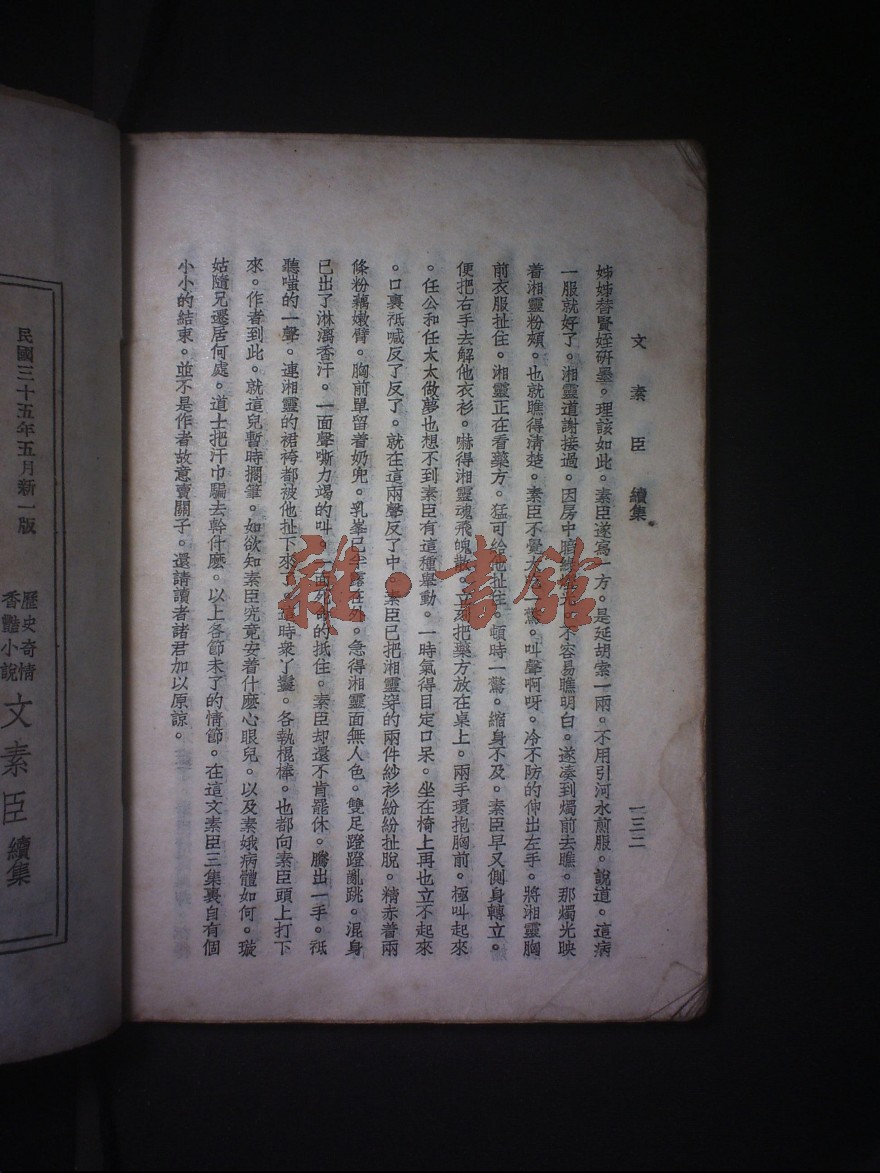 文素臣 續集
一三二
姊姊替賢姪研墨。理該如此。素臣遂寫一方。是延胡索一兩。不用引河水煎服。說道。這病
一服就好了。湘靈道謝接過。因房中 不容易瞧明白。遂湊到燭前去瞧。那燭光映
着湘靈粉頰。也就瞧得清楚。素臣不覺大吃一驚。叫聲啊呀。冷不防的伸出左手。將湘靈胸
前衣服扯住。湘靈正在看藥方。猛可給他扯住。頓時一驚。縮身不及。素臣早又側身轉立。
便把右手去解他衣衫。嚇得湘靈魂飛魄散。立刻把藥方放在桌上。兩手環抱胸前。極叫起來
。任公和任太太做夢也想不到素臣有這種舉動。一時氣得目定口呆。坐在椅上再也立不起來
。口裏祇喊反了反了。就在這兩聲反了中。素臣已把湘靈穿的兩件紗衫紛紛扯脫。精赤着兩
條粉藕嫩臂。胸前單留着奶兜。乳峯已半露在外。急得湘靈面無人色。雙足蹬蹬亂跳。混身
已出了淋漓香汗。一面聲嘶力竭的叫。一面死命的抵住。素臣却還不肯罷休。騰出一手。祇
聽嗤的一聲。連湘靈的裙袴都被他扯下來了。這時衆丫鬟。各執棍棒。也都向素臣頭上打下
來。作者到此。就這兒暫時擱筆。如欲知素臣究竟安着什麼心眼兒。以及素娥病體如何。璇
姑隨兄還居何處。道士把汗巾騙去幹什麽。以上各節未了的情節。在這文素臣三集裏自有個
小小的結束。並不是作者故意賣關子。還請讀者諸君加以原諒。
雜·書館
民國三十五年五月新一版
歷史奇情
香豔小說
文素臣 續集